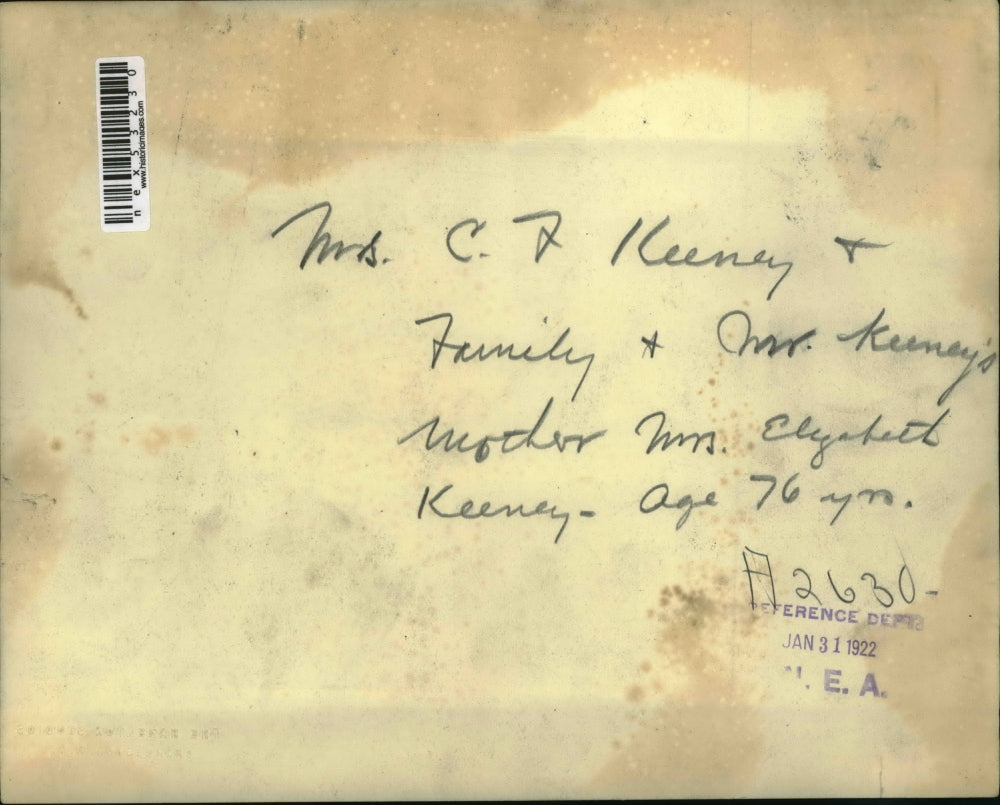 nex53230
www.historicimages.com
Mrs. C. F Keeney +
Family + Mr. Keeney's
Mother Mrs. Elizabeth
Keeney - Age 76 yrs.
A2630-
REFERENCE DEPT
JAN 31 1922
N. E. A.